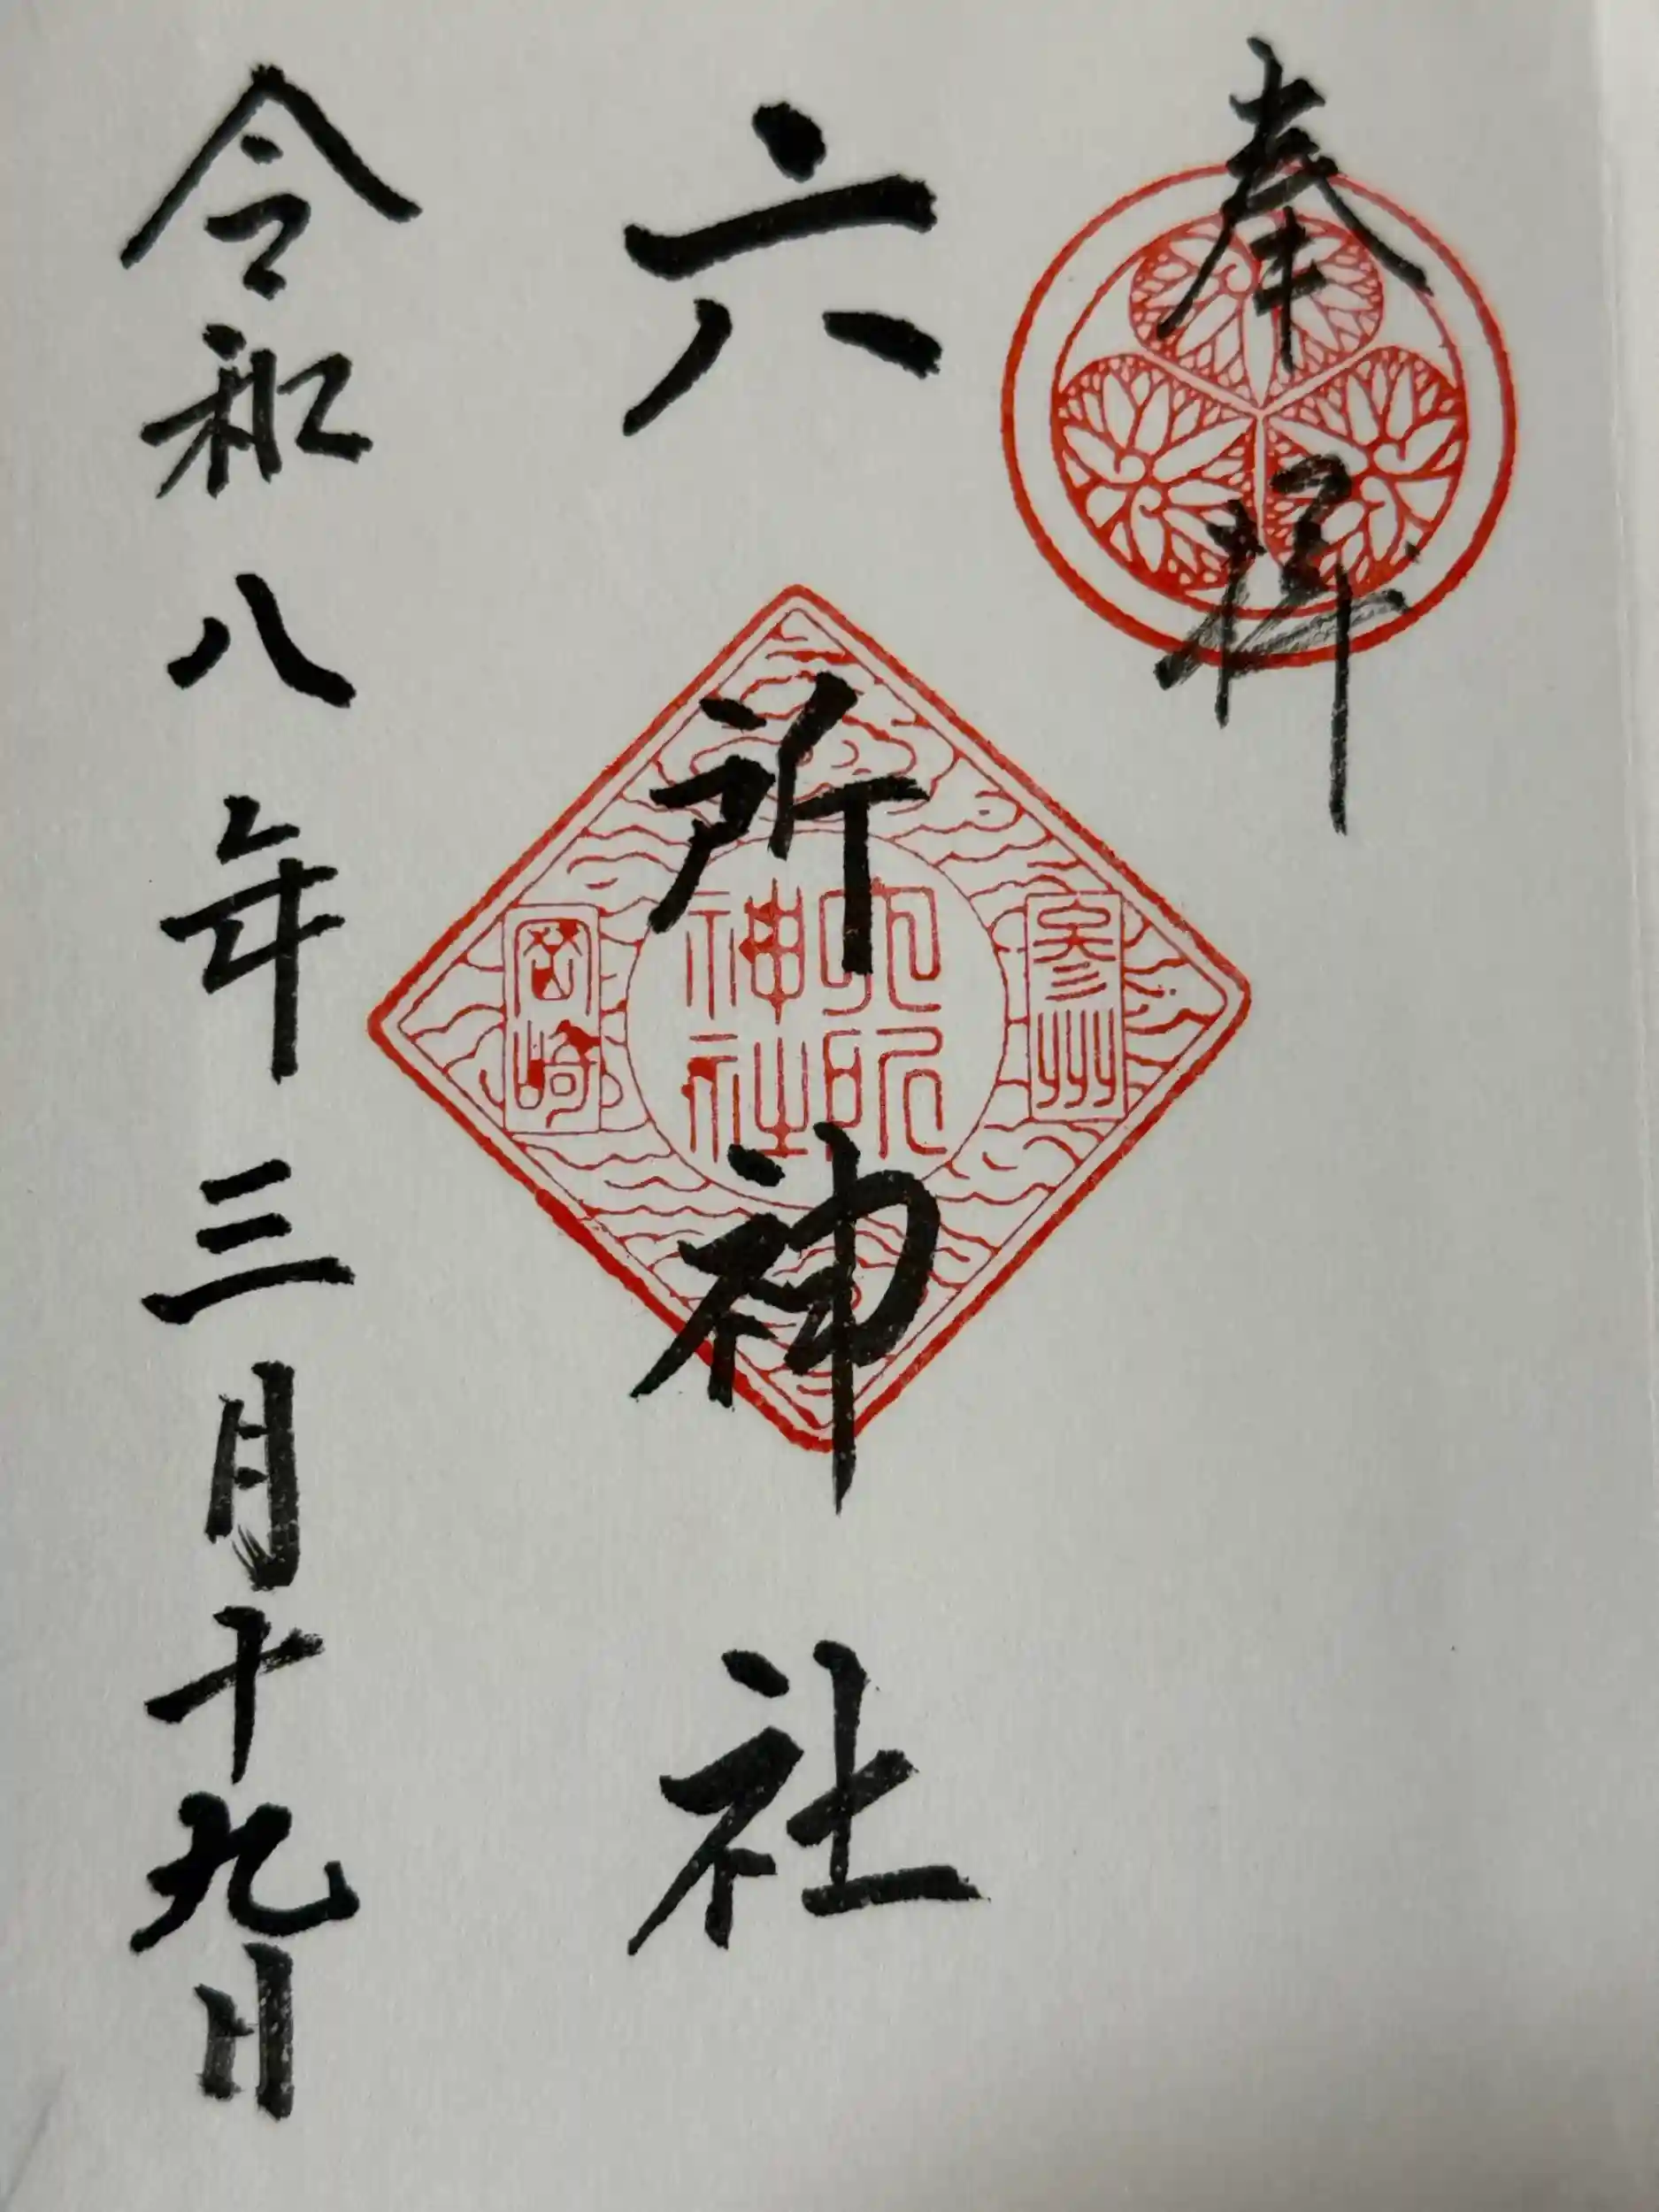 奉拝
六所神社
参州
六所
神社
岡崎
令和八年三月十九日